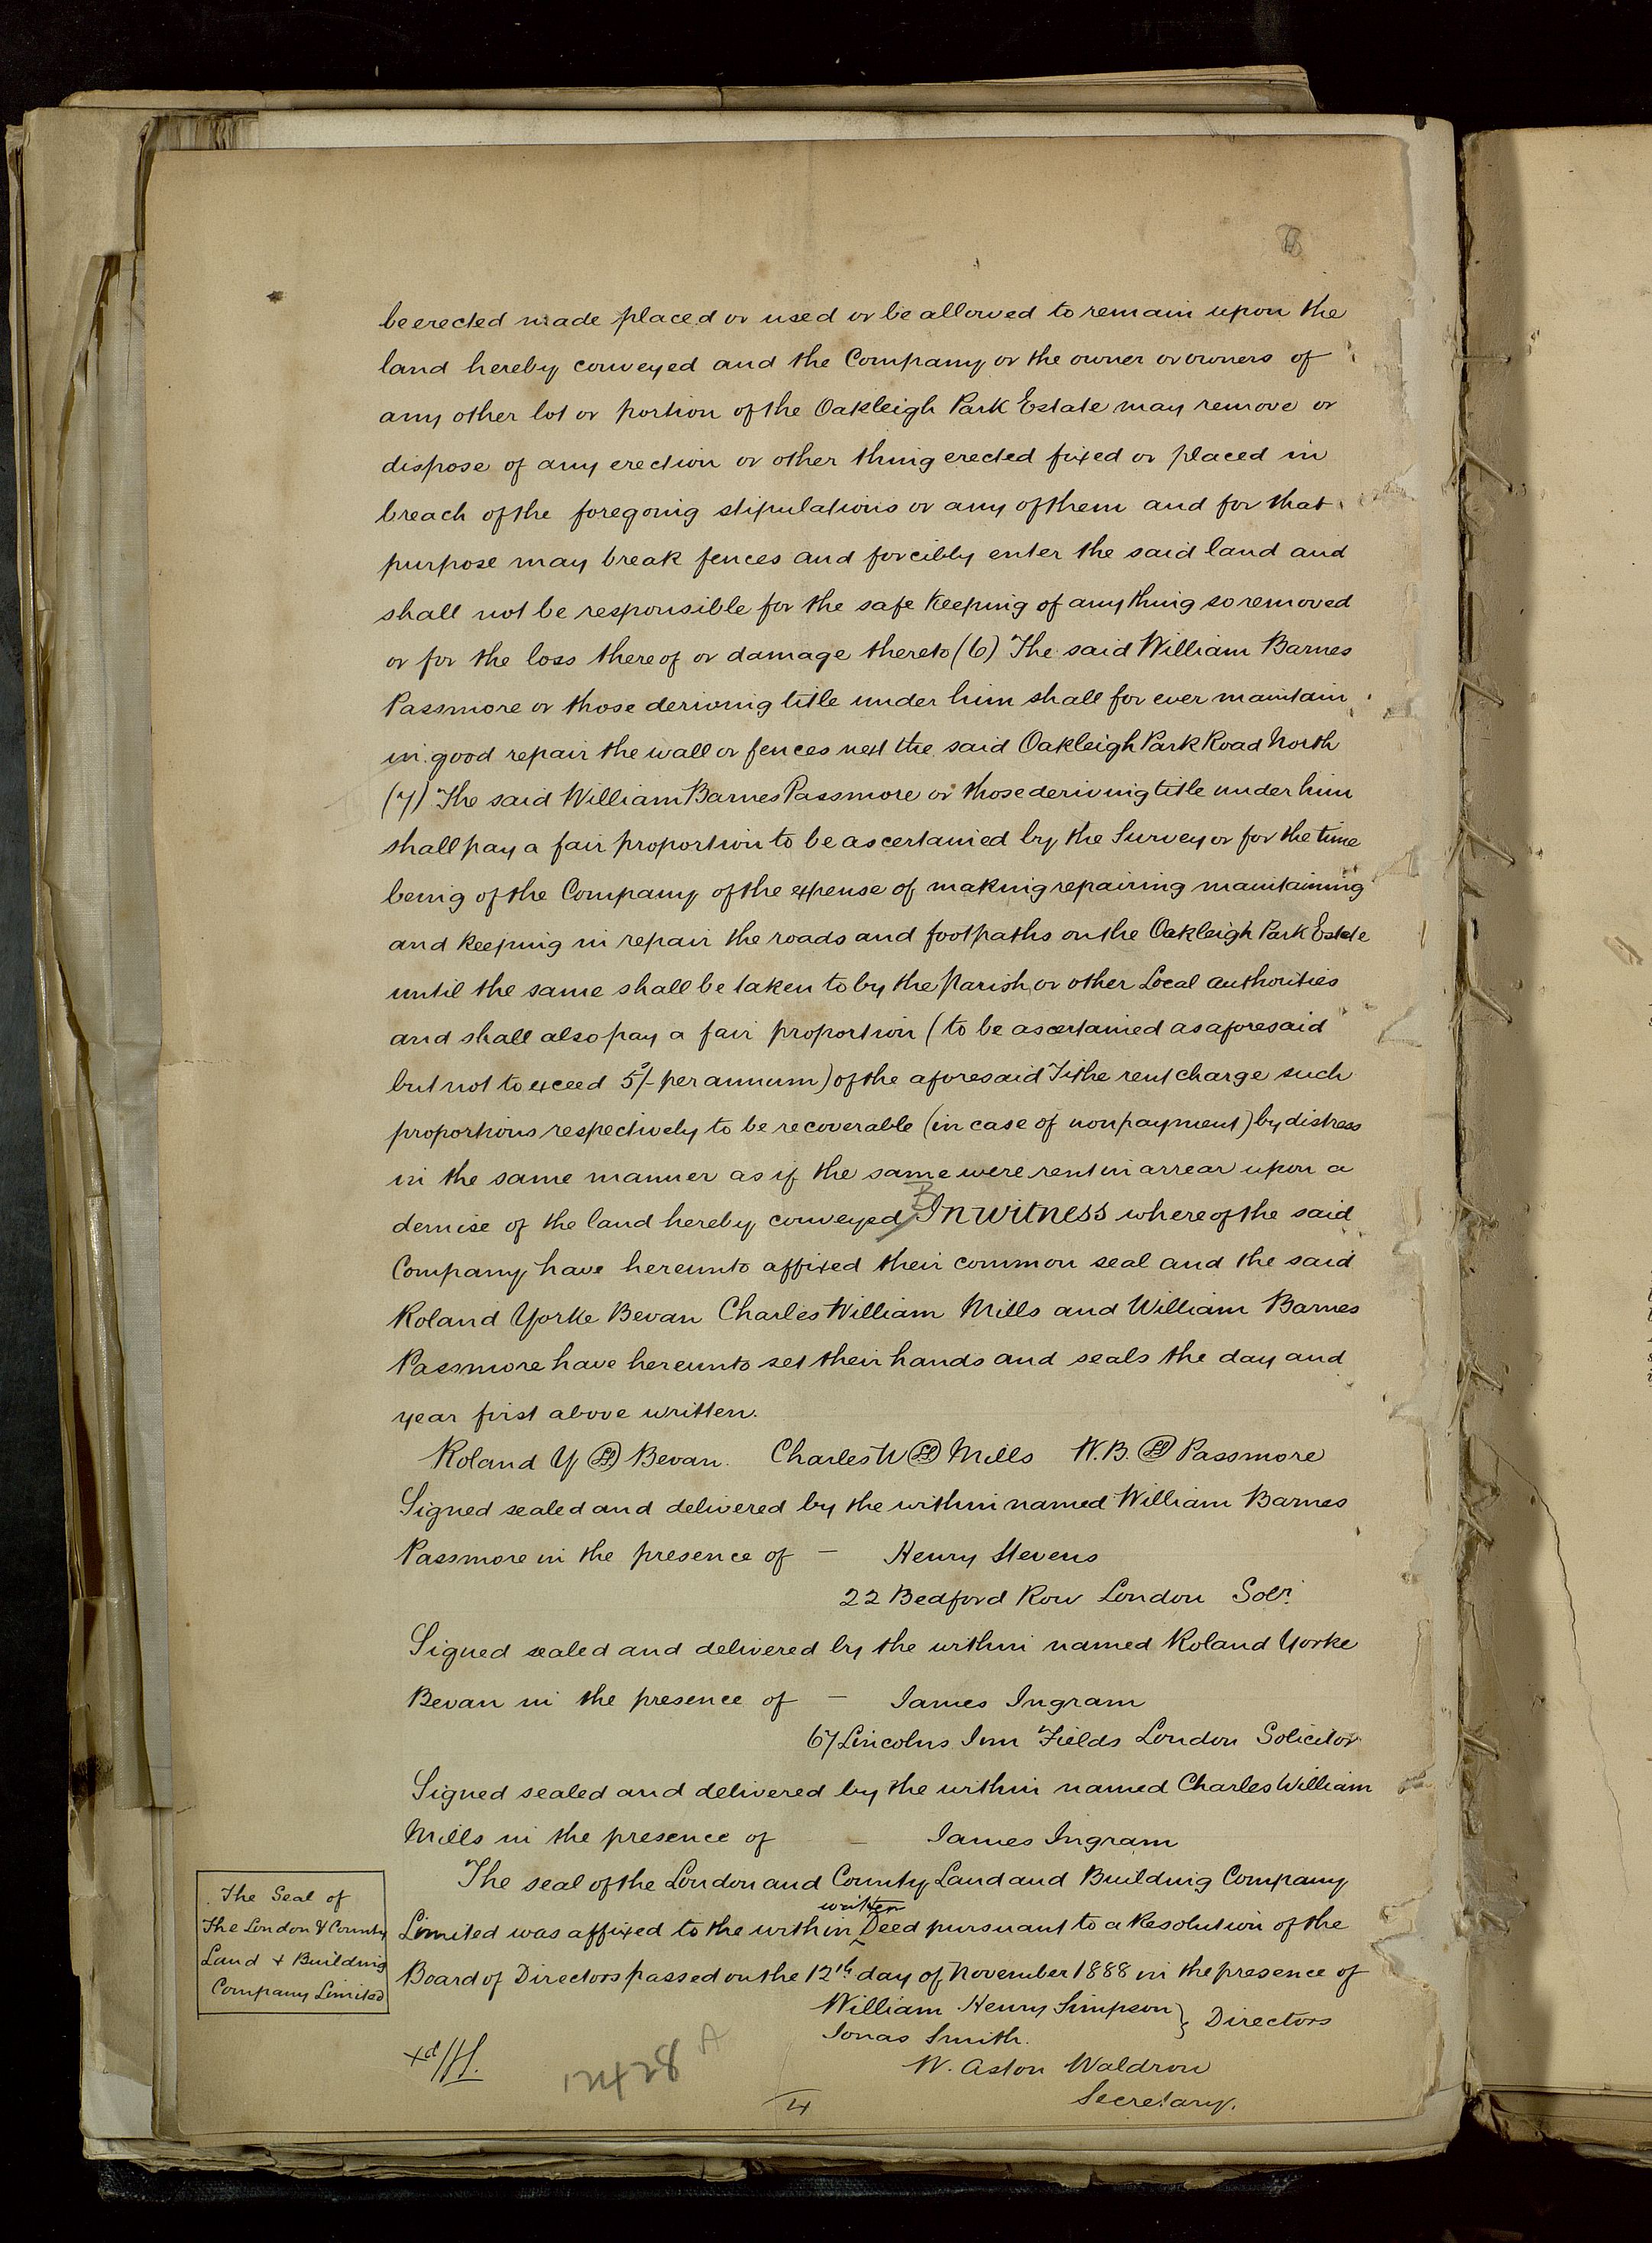 be erected made placed or used or be allowed to remain upon the
land hereby conveyed and the Company or the owner or owners of
any other lot or portion of the Oakleigh Park Estate may remove or
dispose of any erection or other thing erected fixed or placed in
breach of the foregoing stipulations or any of them and for that
purpose may break fences and forcibly enter the said land and
shall not be responsible for the safe keeping of anything so removed
or for the loss thereof or damage thereto (6) The said William Barnes
Passmore or those deriving title under him shall for ever maintain
in good repair the wall or fences next the said Oakleigh Park Road North
(7) The said William Barnes Passmore or those deriving title under him
shall pay a fair proportion to be ascertained by the Surveyor for the time
being of the Company of the expense of making repairing maintaining
and keeping in repair the roads and footpaths on the Oakleigh Park Estate
until the same shall be taken to by the parish or other Local authorities
and shall also pay a fair proportion (to be ascertained as aforesaid
but not to exceed 5/- per annum) of the aforesaid Tithe rent charge such
proportions respectively to be recoverable (in case of nonpayment) by distress
in the same manner as if the same were rent in arrear upon a
B
demise of the land hereby conveyed In witness whereof the said
Company have hereunto affixed their common seal and the said
Roland Yorke Bevan Charles William Mills and William Barnes
Passmore have hereunto set their hands and seals the day and
year first above written.
Roland Y LS Bevan. Charles W LS Mills W.B. LS Passmore
Signed sealed and delivered by the within named William Barnes
Passmore in the presence of – Henry Stevens
22 Bedford Row London Solr.
Signed sealed and delivered by the within named Roland Yorke
Bevan in the presence of – James Ingram
67 Lincolns Inn Fields London Solicitor
Signed sealed and delivered by the within named Charles William
Mills in the presence of – James Ingram
The seal of the London and County Land and Building Company
written
Limited was affixed to the within ^ Deed pursuant to a Resolution of the
Board of Directors passed on the 12th day of November 1888 in the presence of
The Seal of
The London & County
Land & Building
Company Limited
William Henry Simpson } Directors
Jonas Smith.
W. Aston Waldron
Secretary.
xd/H.
12428 A
4